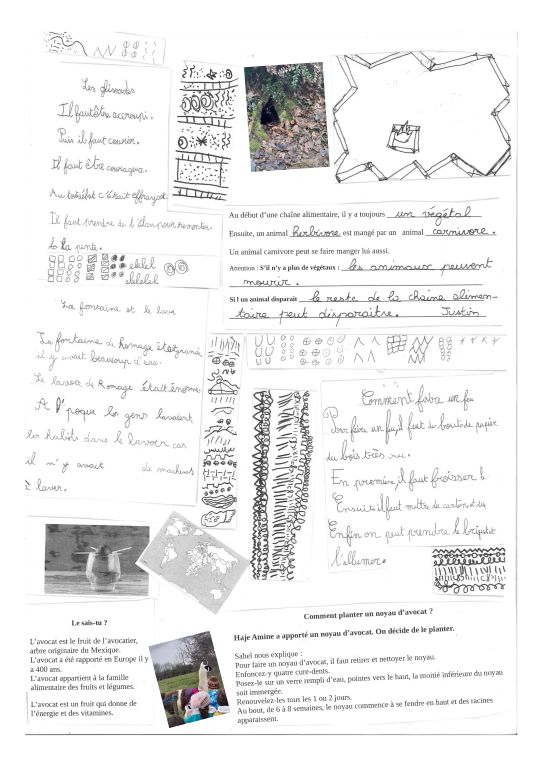 Les glissades
Il faut être accroupi.
Puis il faut courir.
Il faut être courageux.
Au toboggan c'était effrayant.
Il faut prendre de l'élan pour remonter
la pente.
elelel
elelelel
Au début d’une chaîne alimentaire, il y a toujours un végétal
Ensuite, un animal herbivore est mangé par un animal carnivore.
Un animal carnivore peut se faire manger lui aussi.
Attention : S’il n’y a plus de végétaux : les animaux peuvent
mourir.
Si l un animal disparaît le reste de la chaine alimen-
taire peut disparaître. Justin
La fontaine et le lava
La fontaine de Romage était grand
il y avait beaucoup d'eau.
Le lavoir de Romage était énorme
A l'epoque les gens lavaient
les habits dans le lavoir car
il n'y avait de machines
à laver.
Comment faire un feu
Pour faire un feu, il faut de bouts de papier
du bois très sec.
En premier, il faut froisser l
Ensuite il faut mettre de carton et du
Enfin on peut prendre le briquet et
l'allumer.
Le sais-tu ?
L’avocat est le fruit de l’avocatier,
arbre originaire du Mexique.
L’avocat a été rapporté en Europe il y
a 400 ans.
L’avocat appartient à la famille
alimentaire des fruits et légumes.
L’avocat est un fruit qui donne de
l’énergie et des vitamines.
Comment planter un noyau d’avocat ?
Haje Amine a apporté un noyau d’avocat. On décide de le planter.
Sahel nous explique :
Pour faire un noyau d’avocat, il faut retirer et nettoyer le noyau.
Enfoncez-y quatre cure-dents.
Posez-le sur un verre rempli d’eau, pointes vers le haut, la moitié inférieure du noyau
soit immergée.
Renouvelez-les tous les 1 ou 2 jours.
Au bout, de 6 à 8 semaines, le noyau commence à se fendre en haut et des racines
apparaissent.